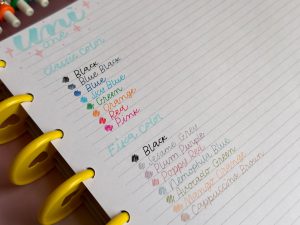 uni
one
Classic Color
Black
Blue Black
Blue
Ice Blue
Green
Orange
Red
Pink
Fika Color
Black
Sesame Grey
Plum Purple
Poppy Red
Nemophila Blue
Avocado Green
Mango Orange
Cappuccino Brown